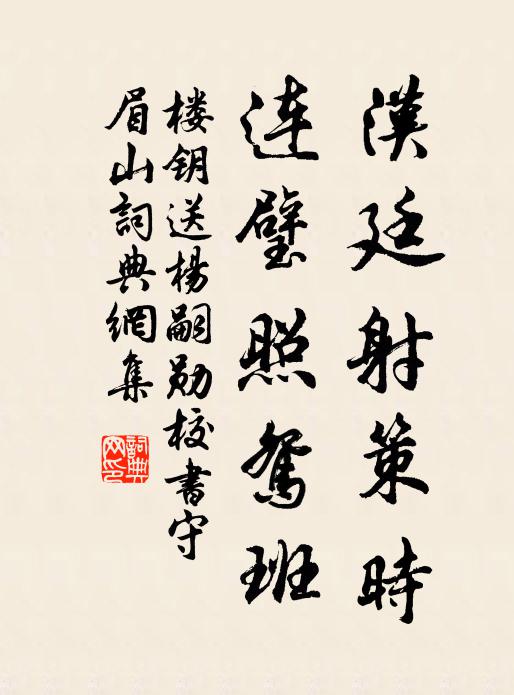 漢廷射策時
連璧照鴛班
楼钥送楊嗣勋校書守
眉山詞典網集
詞典网印